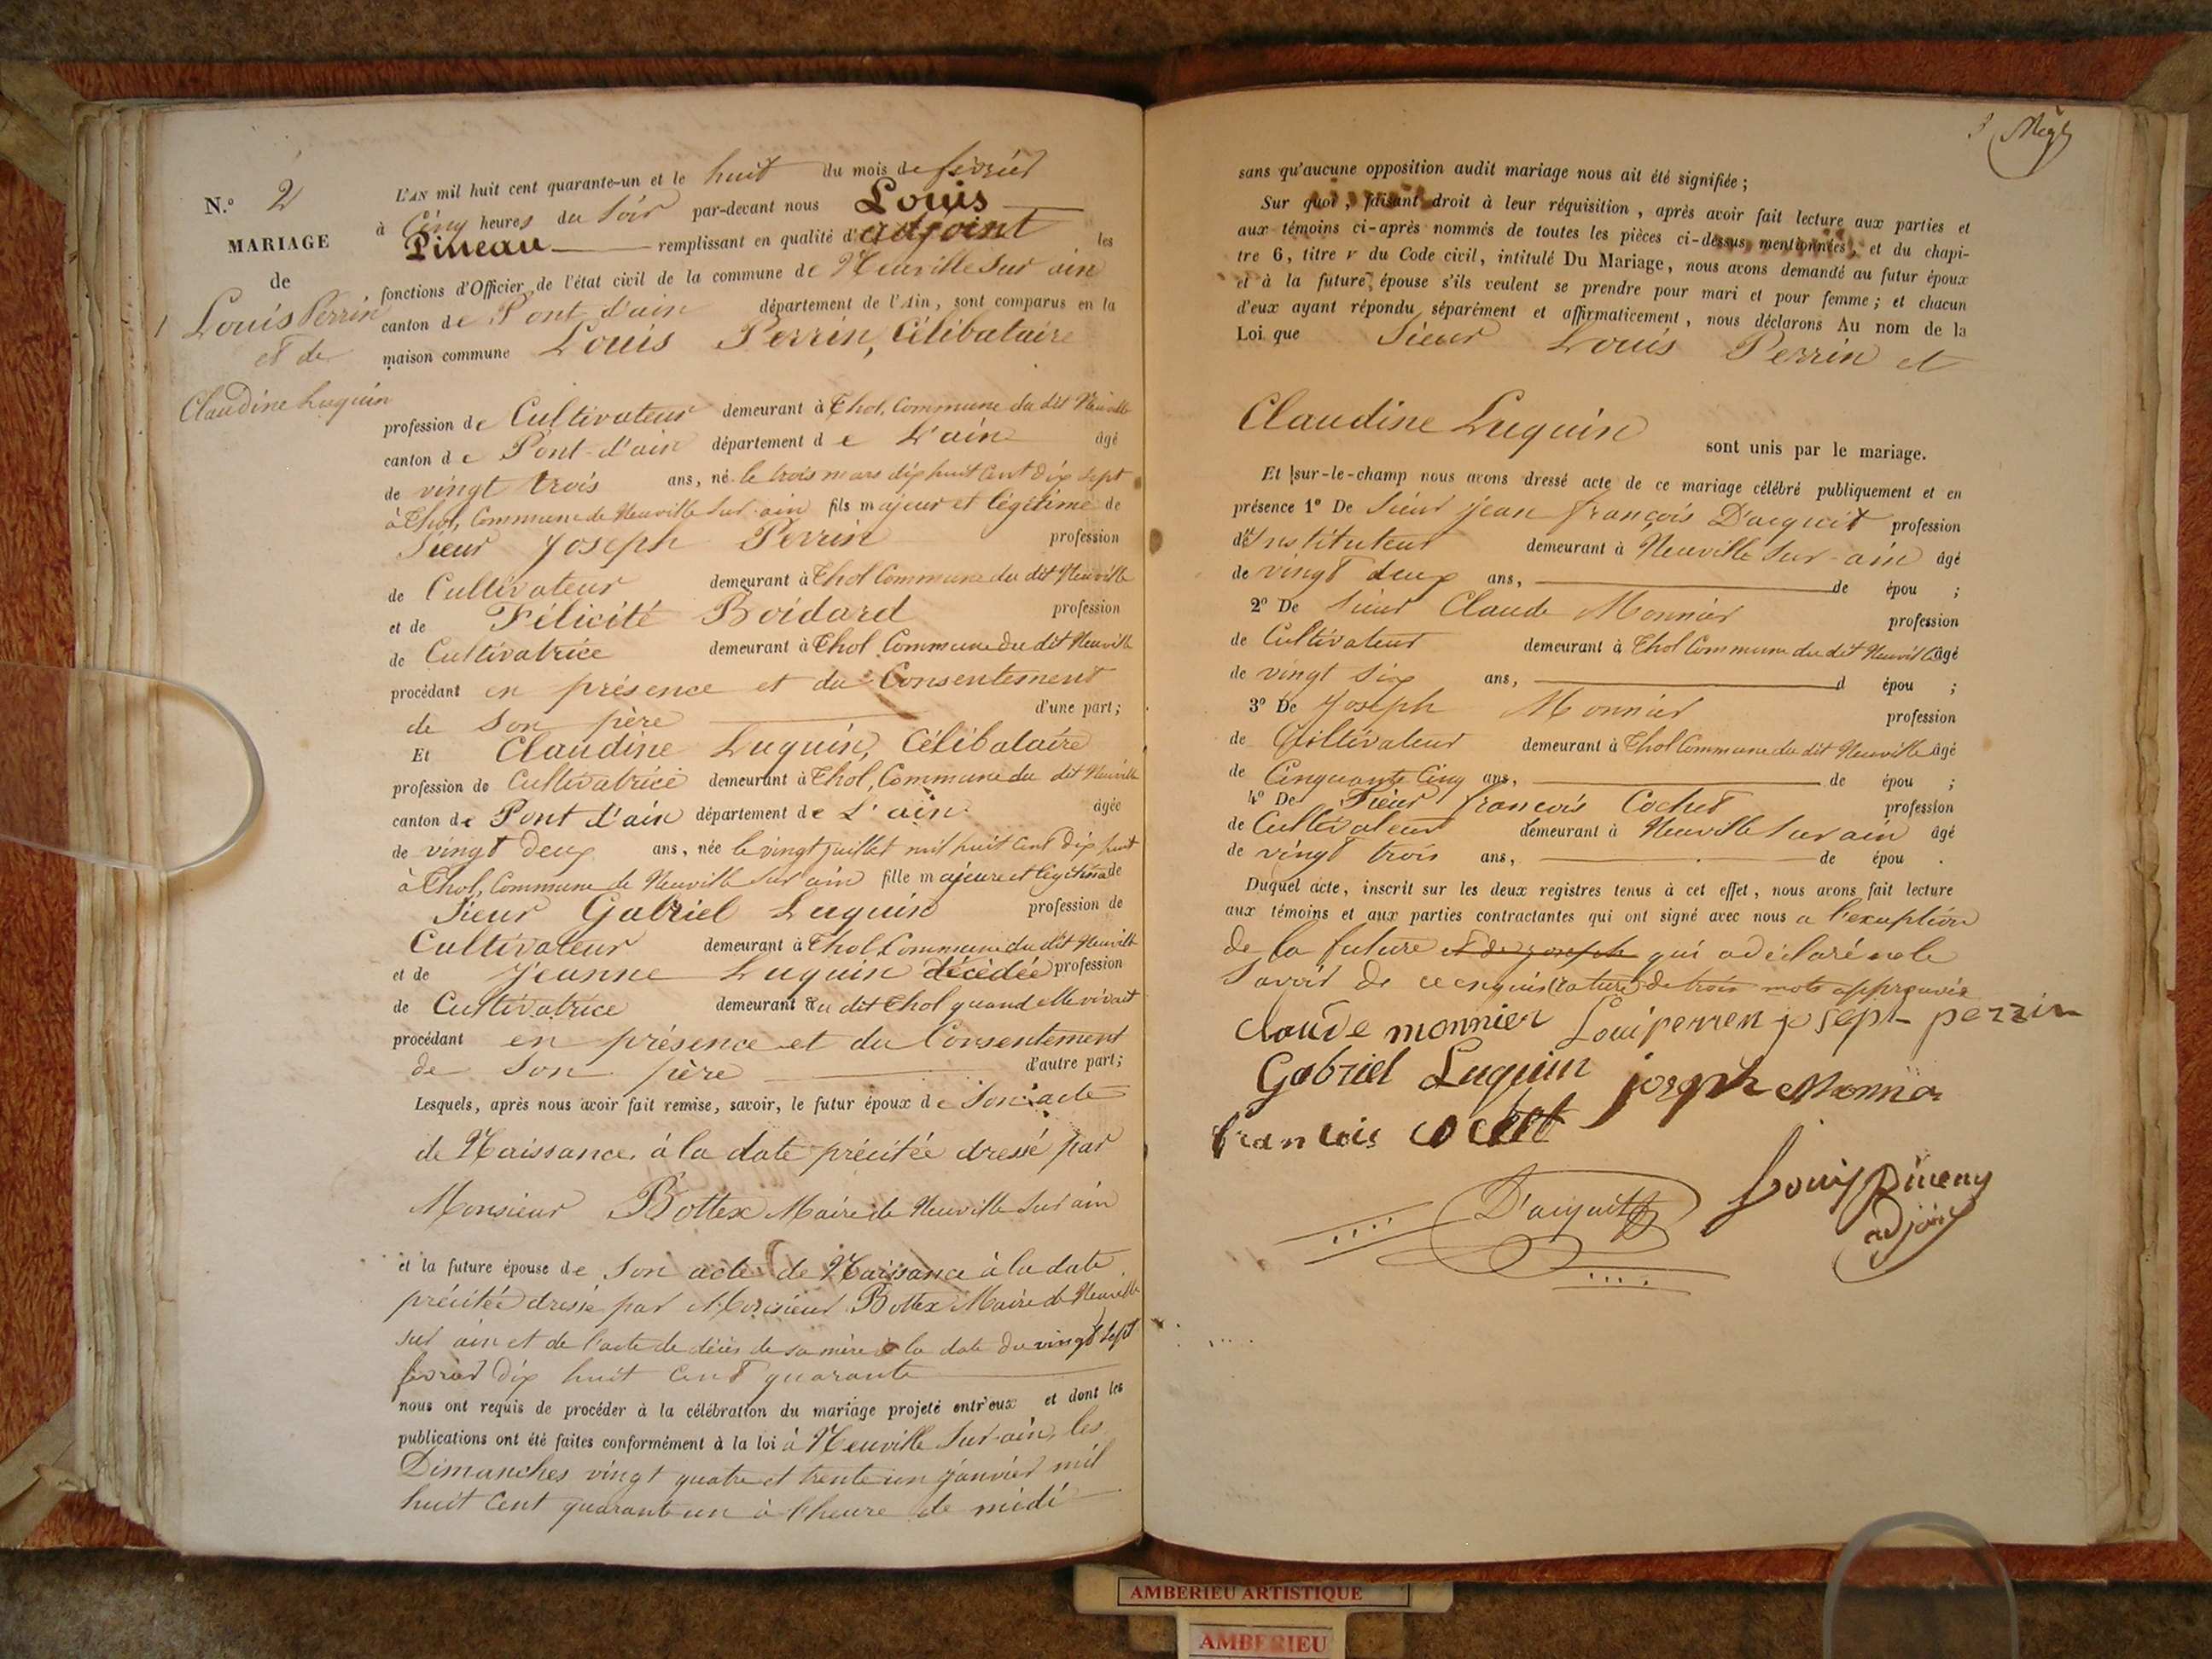 N.º 2
MARIAGE
de
Louis Perrin
et de
Claudine Luquin
L'AN mil huit cent quarante-un et le huit du mois de février
à Cinq heures du Soir par-devant nous Louis
Pineau remplissant en qualité d'adjoint les
fonctions d'Officier de l'état civil de la commune de Neuville Sur ain
canton de Pont d'ain département de l'Ain, sont comparus en la
maison commune Louis Perrin, Célibataire
profession de Cultivateur demeurant à Thol, Commune du dit Neuville
canton de Pont-d'ain département de L'ain âgé
de vingt trois ans, né le trois mars dix huit Cent dix Sept
à Thol, Commune de Neuville Sur ain fils majeur et légitime de
Sieur Joseph Perrin profession
de Cultivateur demeurant à Thol Commune du dit Neuville
et de Félicité Boidard profession
de Cultivatrice demeurant à Thol Commune du dit Neuville
procédant en présence et du Consentement
de Son père d'une part;
Et Claudine Luquin, Célibataire
profession de Cultivatrice demeurant à Thol, Commune du dit Neuville
canton de Pont d'ain département de L'ain âgée
de vingt deux ans, née le vingt juillet mil huit Cent Dix huit
à Thol, Commune de Neuville Sur ain fille majeure et légitime de
Sieur Gabriel Luquin profession de
Cultivateur demeurant à Thol, Commune du dit Neuville
et de Jeanne Luquin décédée profession
de Cultivatrice demeurant au dit Thol quand elle vivait
procédant en présence et du Consentement
de Son père d'autre part;
Lesquels, après nous avoir fait remise, savoir, le futur époux de Son acte
de Naissance à la date précitée dressé par
Monsieur Bottex Maire de Neuville Sur ain
et la future épouse de Son acte de Naissance à la date
précitée dressé par Monsieur Bottex Maire de Neuville
sur ain et de l'acte de décès de sa mère à la date du vingt Sept
février Dix huit Cent quarante
nous ont requis de procéder à la célébration du mariage projeté entr'eux et dont les
publications ont été faites conformément à la loi à Neuville Sur-ain, les
Dimanches vingt quatre et trente un janvier mil
huit Cent quarante un à l'heure de midi
3
sans qu'aucune opposition audit mariage nous ait été signifiée;
Sur quoi, faisant droit à leur réquisition, après avoir fait lecture aux parties et
aux témoins ci-après nommés de toutes les pièces ci-dessus mentionnées, et du chapi-
tre 6, titre v du Code civil, intitulé Du Mariage, nous avons demandé au futur époux
et à la future épouse s'ils veulent se prendre pour mari et pour femme; et chacun
d'eux ayant répondu séparément et affirmativement, nous déclarons Au nom de la
Loi que Sieur Louis Perrin et
Claudine Luquin sont unis par le mariage.
Et sur-le-champ nous avons dressé acte de ce mariage célébré publiquement et en
présence 1º De Sieur Jean François D'acquit profession
d'Instituteur demeurant à Neuville Sur-ain âgé
de vingt deux ans, de épou ;
2º De Sieur Claude Monnier profession
de Cultivateur demeurant à Thol Commune du dit Neuville âgé
de vingt Six ans, d épou ;
3º De Joseph Monnier profession
de Cultivateur demeurant à Thol Commune du dit Neuville âgé
de Cinquante Cinq ans, de épou ;
4º De Sieur François Cochet profession
de Cultivateur demeurant à Neuville Sur ain âgé
de vingt trois ans, de épou .
Duquel acte, inscrit sur les deux registres tenus à cet effet, nous avons fait lecture
aux témoins et aux parties contractantes qui ont signé avec nous a l'exception
de la future et de joseph qui a déclaré ne le
Savoir de ce enquis (rature) de trois mots approuvée
claude monnier Loui perren josept perrin
Gabriel Luquin joseph Monnie
francois cochet
D'acquit Louis Pineau
adjoint
AMBERIEU ARTISTIQUE
AMBERIEU